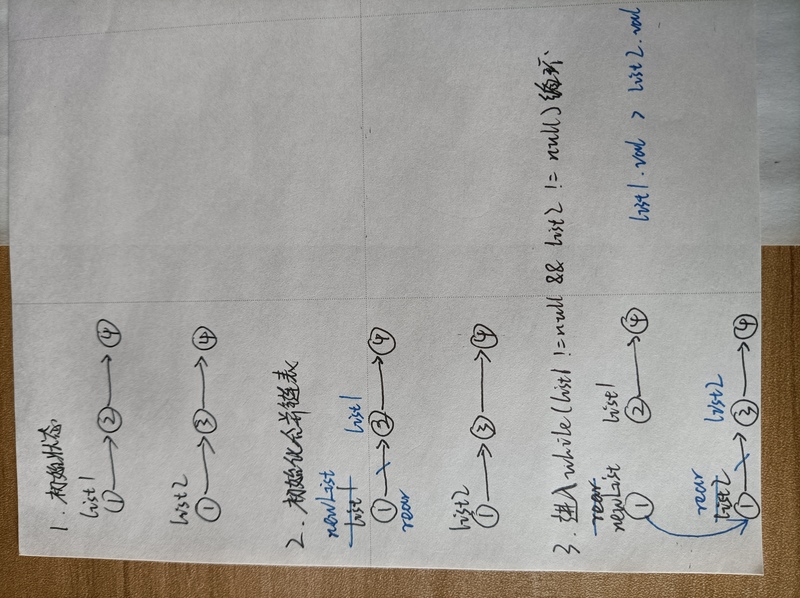 1. 初始状态
list1
① → ② → ④
list2
① → ③ → ④
2. 初始化合并链表
newList
list1 list1
① → ② → ④
rear
list2
① → ③ → ④
3. 进入while(list1 != null && list2 != null)循环
rear
newList list1
① ② → ④
list1.val > list2.val
rear
list2 list2
① → ③ → ④